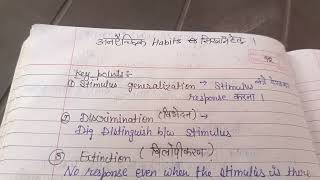 अनैच्छिक Habits के
Key points:-
① Stimulus generalization → Stimulus को देखकर
response करना।
② Discrimination (विभेदन)
Dig Distinguish b/w Stimulus
③ Extinction (विलोपीकरण)
No response even when the stimulus is there